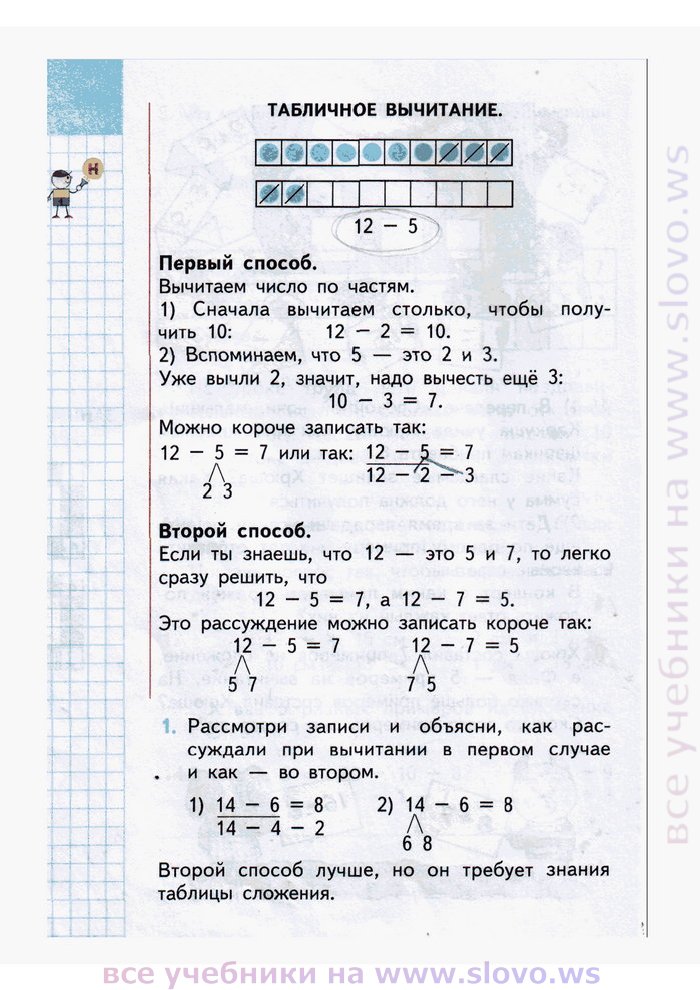 ТАБЛИЧНОЕ ВЫЧИТАНИЕ.
12 − 5
Первый способ.
Вычитаем число по частям.
1) Сначала вычитаем столько, чтобы полу-
чить 10: 12 − 2 = 10.
2) Вспоминаем, что 5 — это 2 и 3.
Уже вычли 2, значит, надо вычесть ещё 3:
10 − 3 = 7.
Можно короче записать так:
12 − 5 = 7 или так: 12 − 5 = 7
2 3 12 − 2 − 3
Второй способ.
Если ты знаешь, что 12 — это 5 и 7, то легко
сразу решить, что
12 − 5 = 7, а 12 − 7 = 5.
Это рассуждение можно записать короче так:
12 − 5 = 7 12 − 7 = 5
5 7 7 5
1. Рассмотри записи и объясни, как рас-
суждали при вычитании в первом случае
и как — во втором.
1) 14 − 6 = 8 2) 14 − 6 = 8
14 − 4 − 2 6 8
Второй способ лучше, но он требует знания
таблицы сложения.
все учебники на www.slovo.ws
все учебники на www.slovo.ws